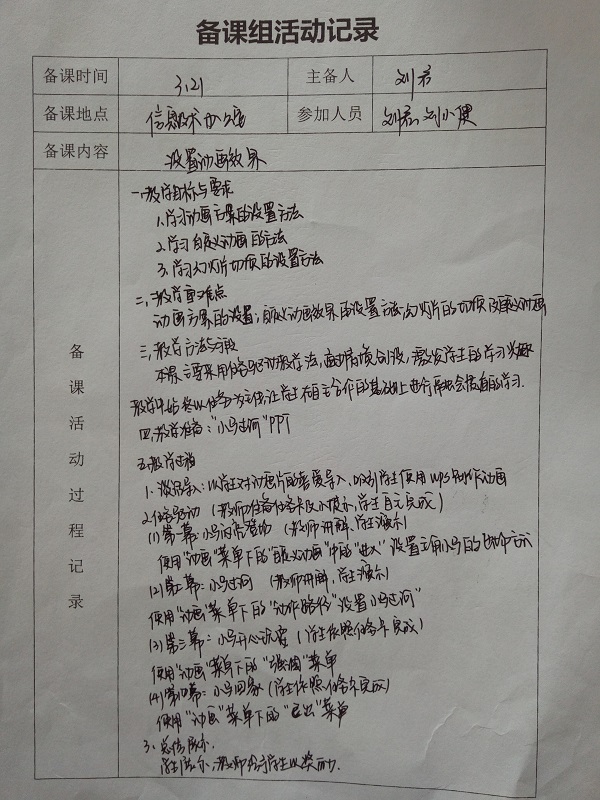 备课组活动记录
备课时间 3.21 主备人 刘君
备课地点 信息技术办公室 参加人员 刘君、刘小健
备课内容 设置动画效果
备课活动过程记录
一、教学目标与要求
1.学习动画方案的设置方法
2.学习自定义动画的方法
3.学习幻灯片切换的设置方法
二、教学重难点
动画方案的设置;自定义动画效果的设置方法;幻灯片的切换及自定义动画
三、教学方法与手段
本课主要采用任务驱动教学法,由情境创设,激发学生的学习兴趣
教学中始终以任务为主体,让学生在自主合作的基础上进行
四、教学准备:"小马过河"PPT
五、教学过程
1.谈话导入:以学生对动画片的喜爱导入,吸引学生使用WPS制作动画
2.任务驱动 (教师准备任务卡及小提示,学生自主完成)
(1)第一幕:小马闪亮登场 (教师讲解,学生演示)
使用"动画"菜单下的"自定义动画"中的"进入"设置主角小马的出场方式
(2)第二幕:小马过河 (教师讲解,学生演示)
使用"动画"菜单下的"动作路径"设置小马过河"
(3)第三幕:小马开心玩耍 (学生依照任务卡完成)
使用"动画"菜单下的"强调"菜单
(4)第四幕:小马回家(学生依照任务卡完成)
使用"动画"菜单下的"退出"菜单
3.总结展示.
学生展示,教师给予学生以奖励.